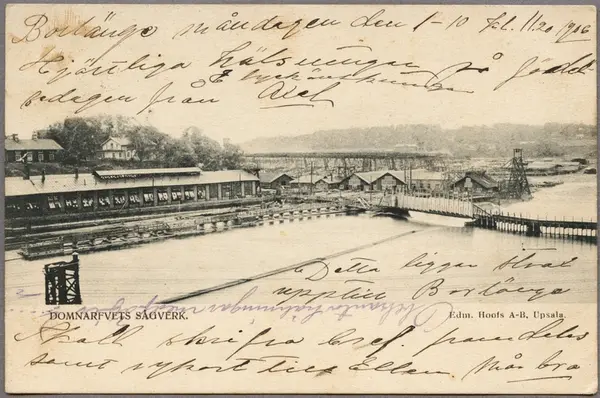 Borlänge måndagen den 1-10 kl. 11.20 1906
Hjärtliga hälsningar &
lyckönskningar på födel-
sedagen från Axel
Detta ligger strax
upptill Borlänge
DOMNARFVETS SÅGVERK.
Edm. Hoofs A-B, Upsala
Skall skrifva bref framdeles
samt vykort till Ellen. Mår bra